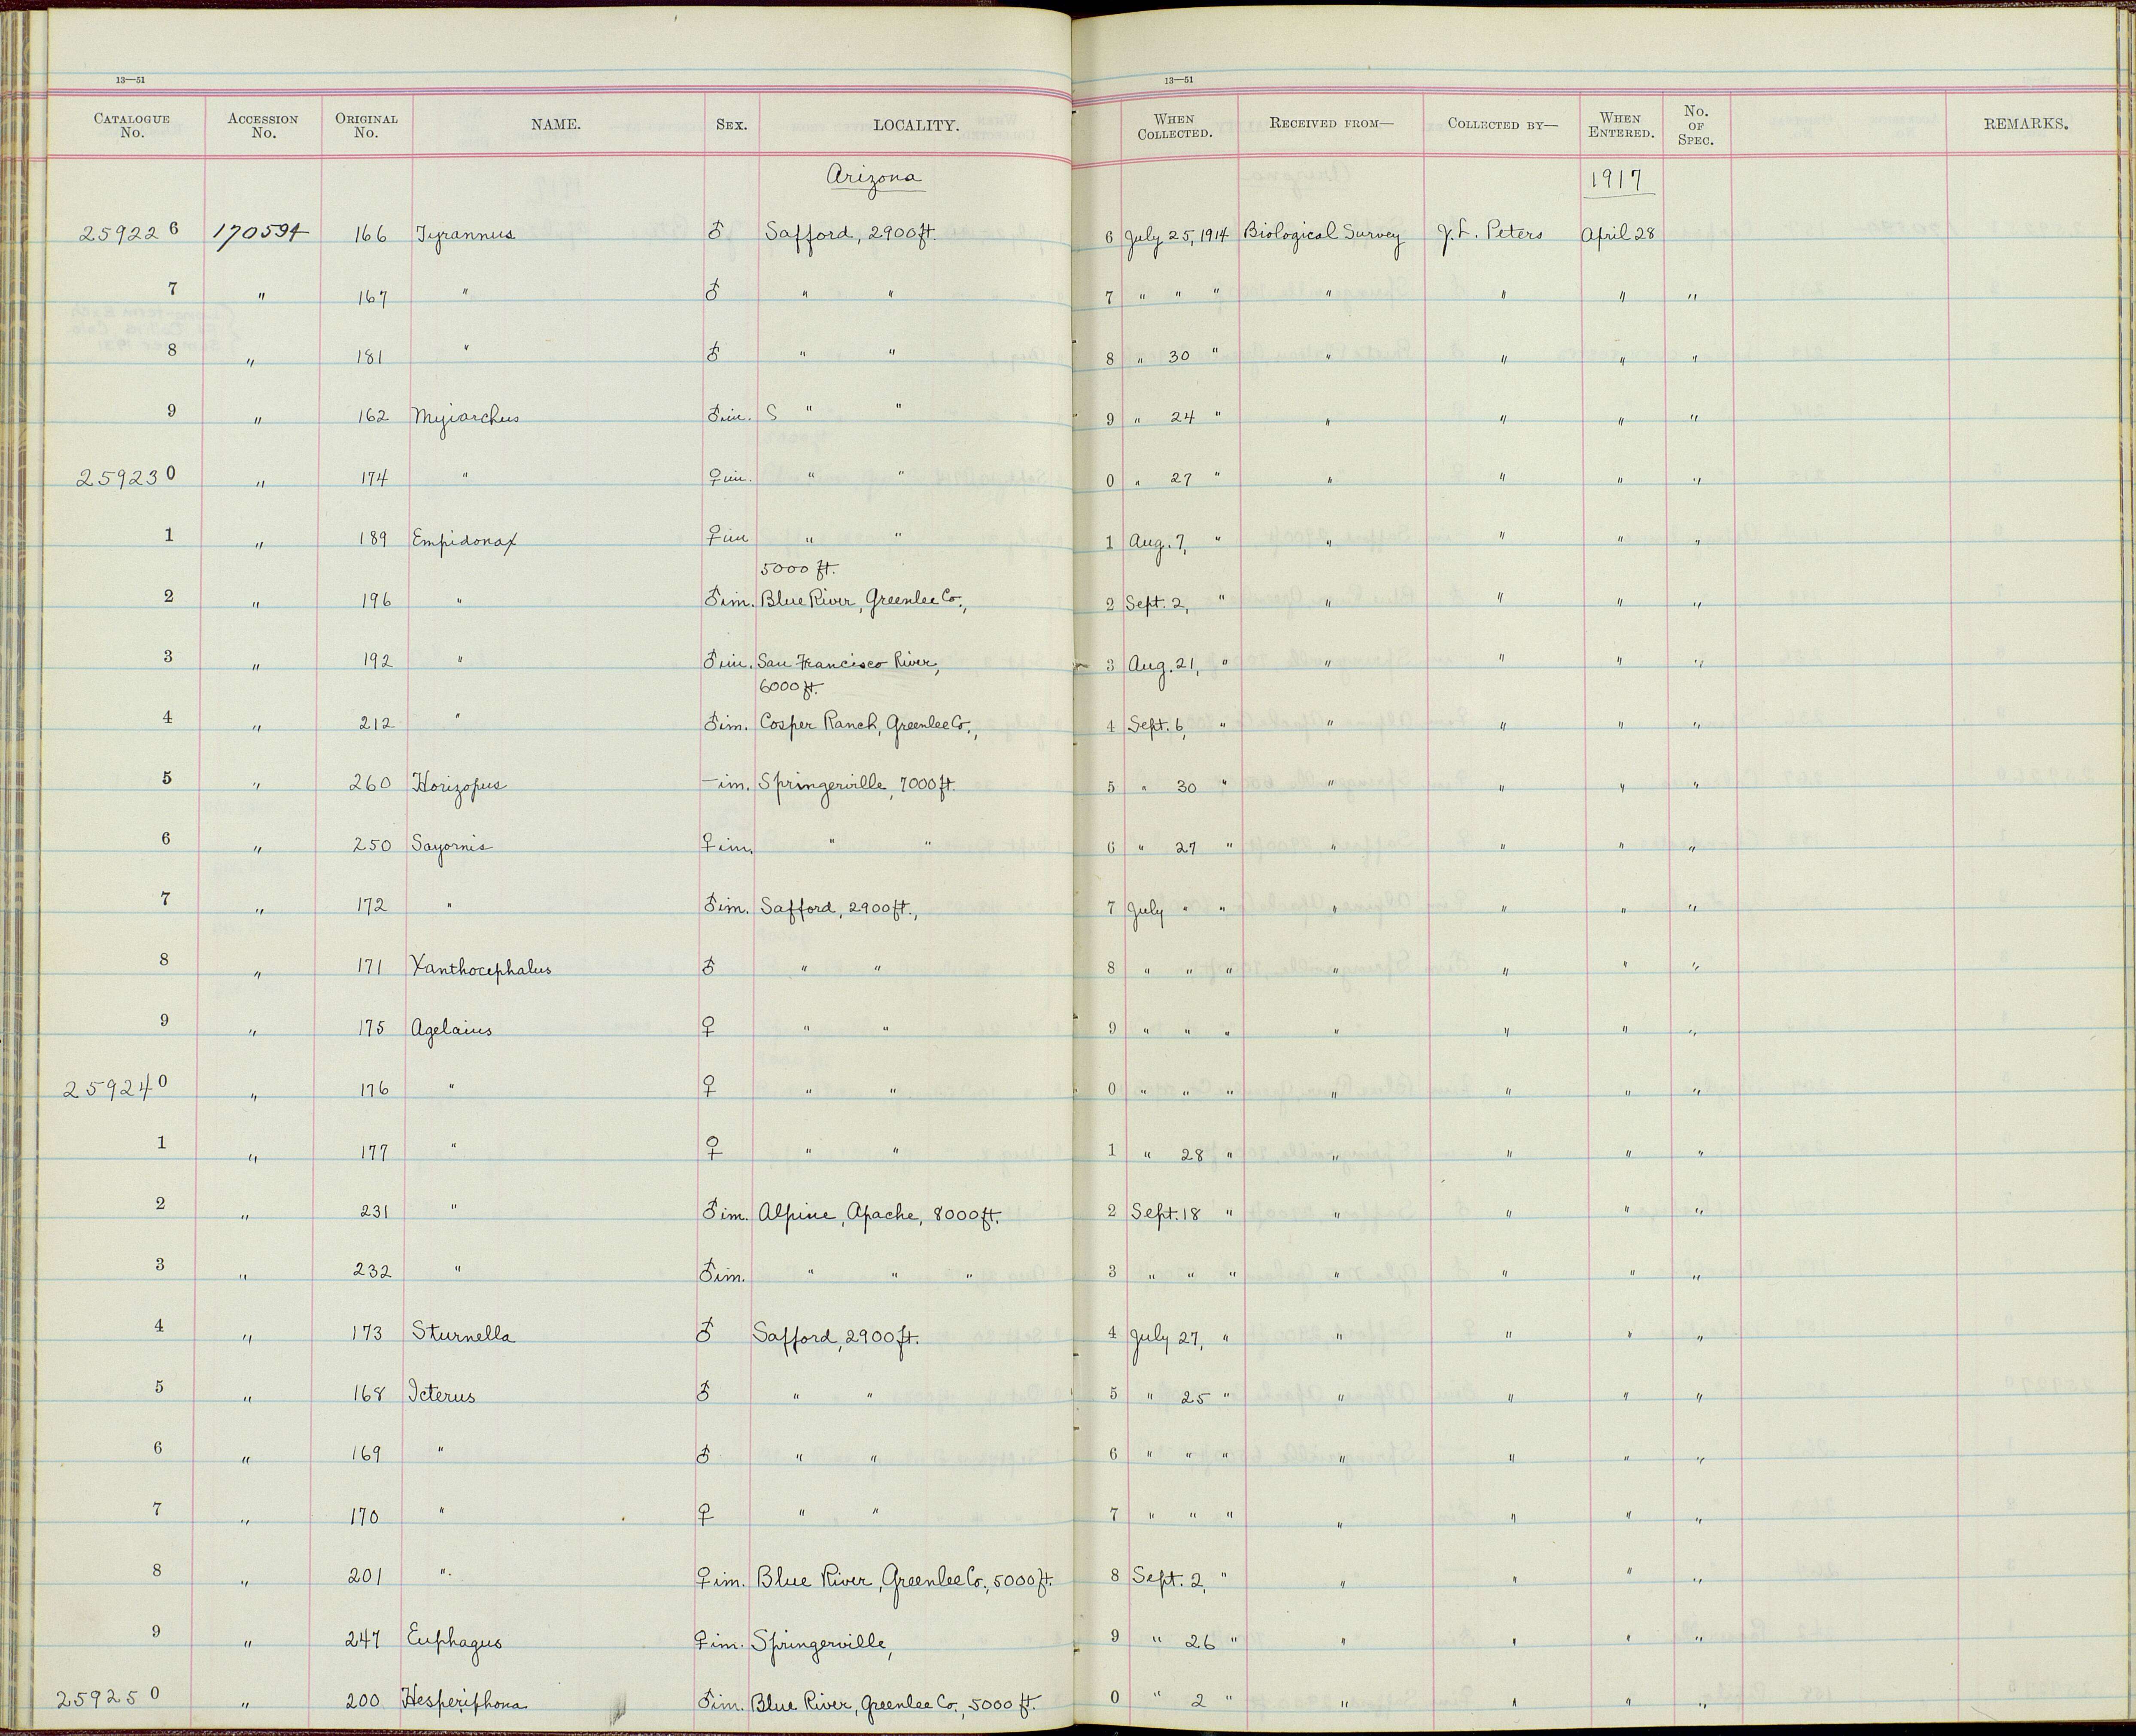 13—51 13—51
CATALOGUE No. ACCESSION No. ORIGINAL No. NAME. SEX. LOCALITY. WHEN COLLECTED. RECEIVED FROM— COLLECTED BY— WHEN ENTERED. No. OF SPEC. REMARKS.
Arizona 1917
259226 170594 166 Tyrannus ♂ Safford, 2900 ft. 6 July 25, 1914 Biological Survey J. L. Peters April 28
7 " 167 " ♂ " " 7 " " " " " " "
8 " 181 " ♂ " " 8 " 30 " " " " "
9 " 162 Myiarchus ♂ im. S " " 9 " 24 " " " " "
259230 " 174 " ♀ im. " " 0 " 27 " " " " "
1 " 189 Empidonax ♀ im " " 1 Aug. 7, " " " " "
5000 ft.
2 " 196 " ♂ im. Blue River, Greenlee Co., 2 Sept. 2, " " " " "
3 " 192 " ♂ im. San Francisco River, 3 Aug. 21, " " " " "
6000 ft.
4 " 212 " ♂ im. Cosper Ranch, Greenlee Co., 4 Sept. 6, " " " " "
5 " 260 Horizopus — im. Springerville, 7000 ft. 5 " 30 " " " " "
6 " 250 Sayornis ♀ im. " " 6 " 27 " " " " "
7 " 172 " ♂ im. Safford, 2900 ft., 7 July " " " " " "
8 " 171 Xanthocephalus ♂ " " 8 " " " " " " "
9 " 175 Agelaius ♀ " " 9 " " " " " " "
259240 " 176 " ♀ " " 0 " " " " " " "
1 " 177 " ♀ " " 1 " 28 " " " " "
2 " 231 " ♂ im. Alpine, Apache, 8000 ft. 2 Sept. 18 " " " " "
3 " 232 " ♂ im. " " " 3 " " " " " " "
4 " 173 Sturnella ♂ Safford, 2900 ft. 4 July 27, " " " " "
5 " 168 Icterus ♂ " " 5 " 25 " " " " "
6 " 169 " ♂ " " 6 " " " " " " "
7 " 170 " ♀ " " 7 " " " " " " "
8 " 201 " ♀ im. Blue River, Greenlee Co., 5000 ft. 8 Sept. 2, " " " " "
9 " 247 Euphagus ♀ im. Springerville, 9 " 26 " " " " "
259250 " 200 Hesperiphona ♂ im. Blue River, Greenlee Co., 5000 ft. 0 " 2 " " " " "